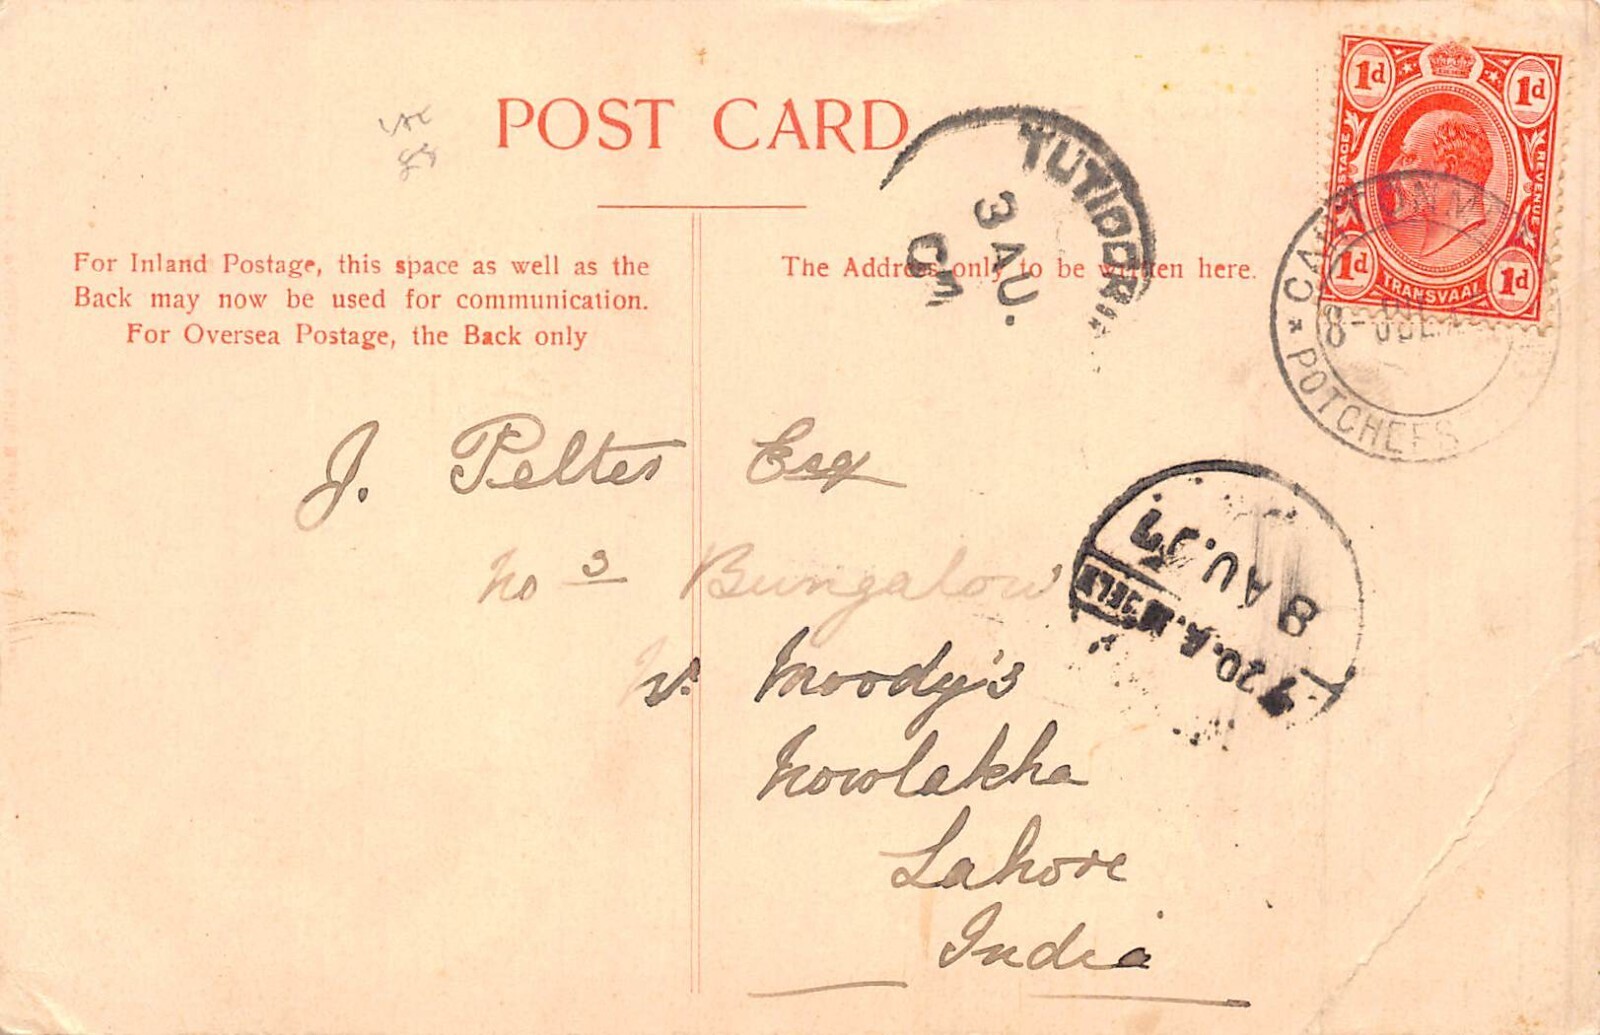 POST CARD
For Inland Postage, this space as well as the
Back may now be used for communication.
For Oversea Postage, the Back only
The Address only to be written here.
1d 1d
POSTAGE REVENUE
1d TRANSVAAL 1d
POTCHEFS
8 - JUL
TUTICORIN
3 AU.
8 AU. 07
7.20.A.M
J. Pelter Esq
No 3 Bungalow
Moody's
Nowlakha
Lahore
India